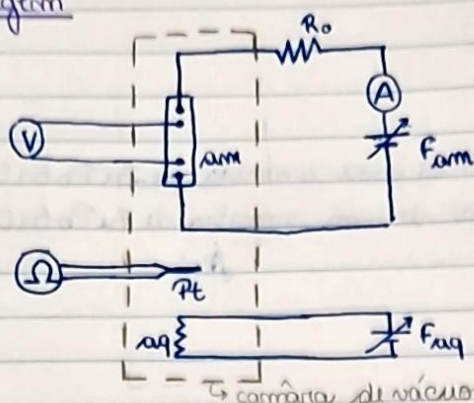 R₀
A
V
am
Fam
Ω
Pt
aq
Faq
↳ camâra de vácuo